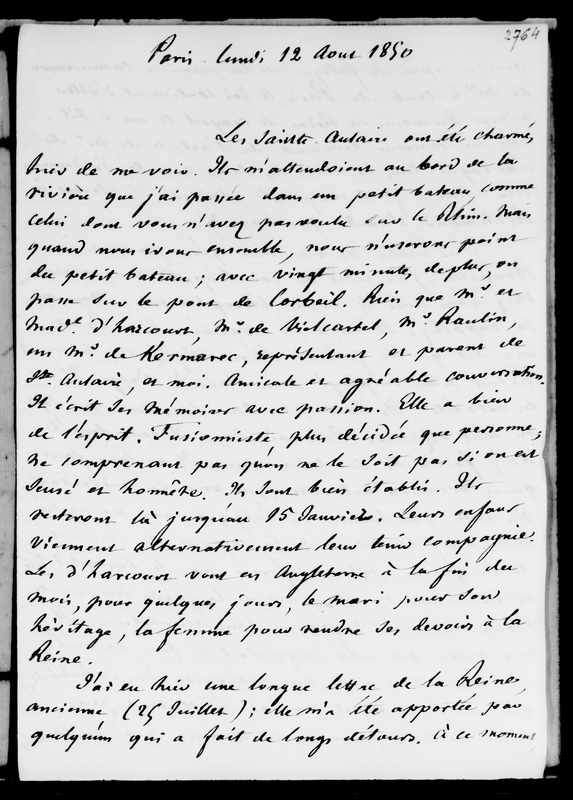 2764
Paris lundi 12 Aout 1850
Les Sainte-Aulaire ont été charmés,
hier de me voir. Ils m'attendoient au bord de la
rivière que j'ai passée dans un petit bateau comme
celui dont vous n'avez pas voulu sur le Rhin. Mais
quand nous irons ensemble, nous n'userons point
du petit bateau ; avec vingt minutes de plus, on
passe sur le pont de Corbeil. Rien que Mr et
Made d'harcourt, Mr de Vielcastel, Mr Raulin,
un Mr de Kermarec, représentant et parent de
Ste Aulaire, et moi. Amicale et agréable conversation.
Il écrit ses mémoires avec passion. Elle a bien
de l'esprit. Fusionniste plus décidée que personne ;
ne comprenant pas qu'on ne le soit pas si on est
sensé et honnête. Ils sont bien établis. Ils
resteront là jusqu'au 15 Janvier. Leurs enfans
viennent alternativement leur tenir compagnie.
Les d'harcourt vont en Angleterre à la fin du
mois, pour quelques jours, le mari pour son
héritage, la femme pour rendre ses devoirs à la
Reine.
J'ai eu hier une longue lettre de la Reine,
ancienne (25 Juillet) ; elle m'a été apportée par
quelqu'un qui a fait de longs détours. à ce moment